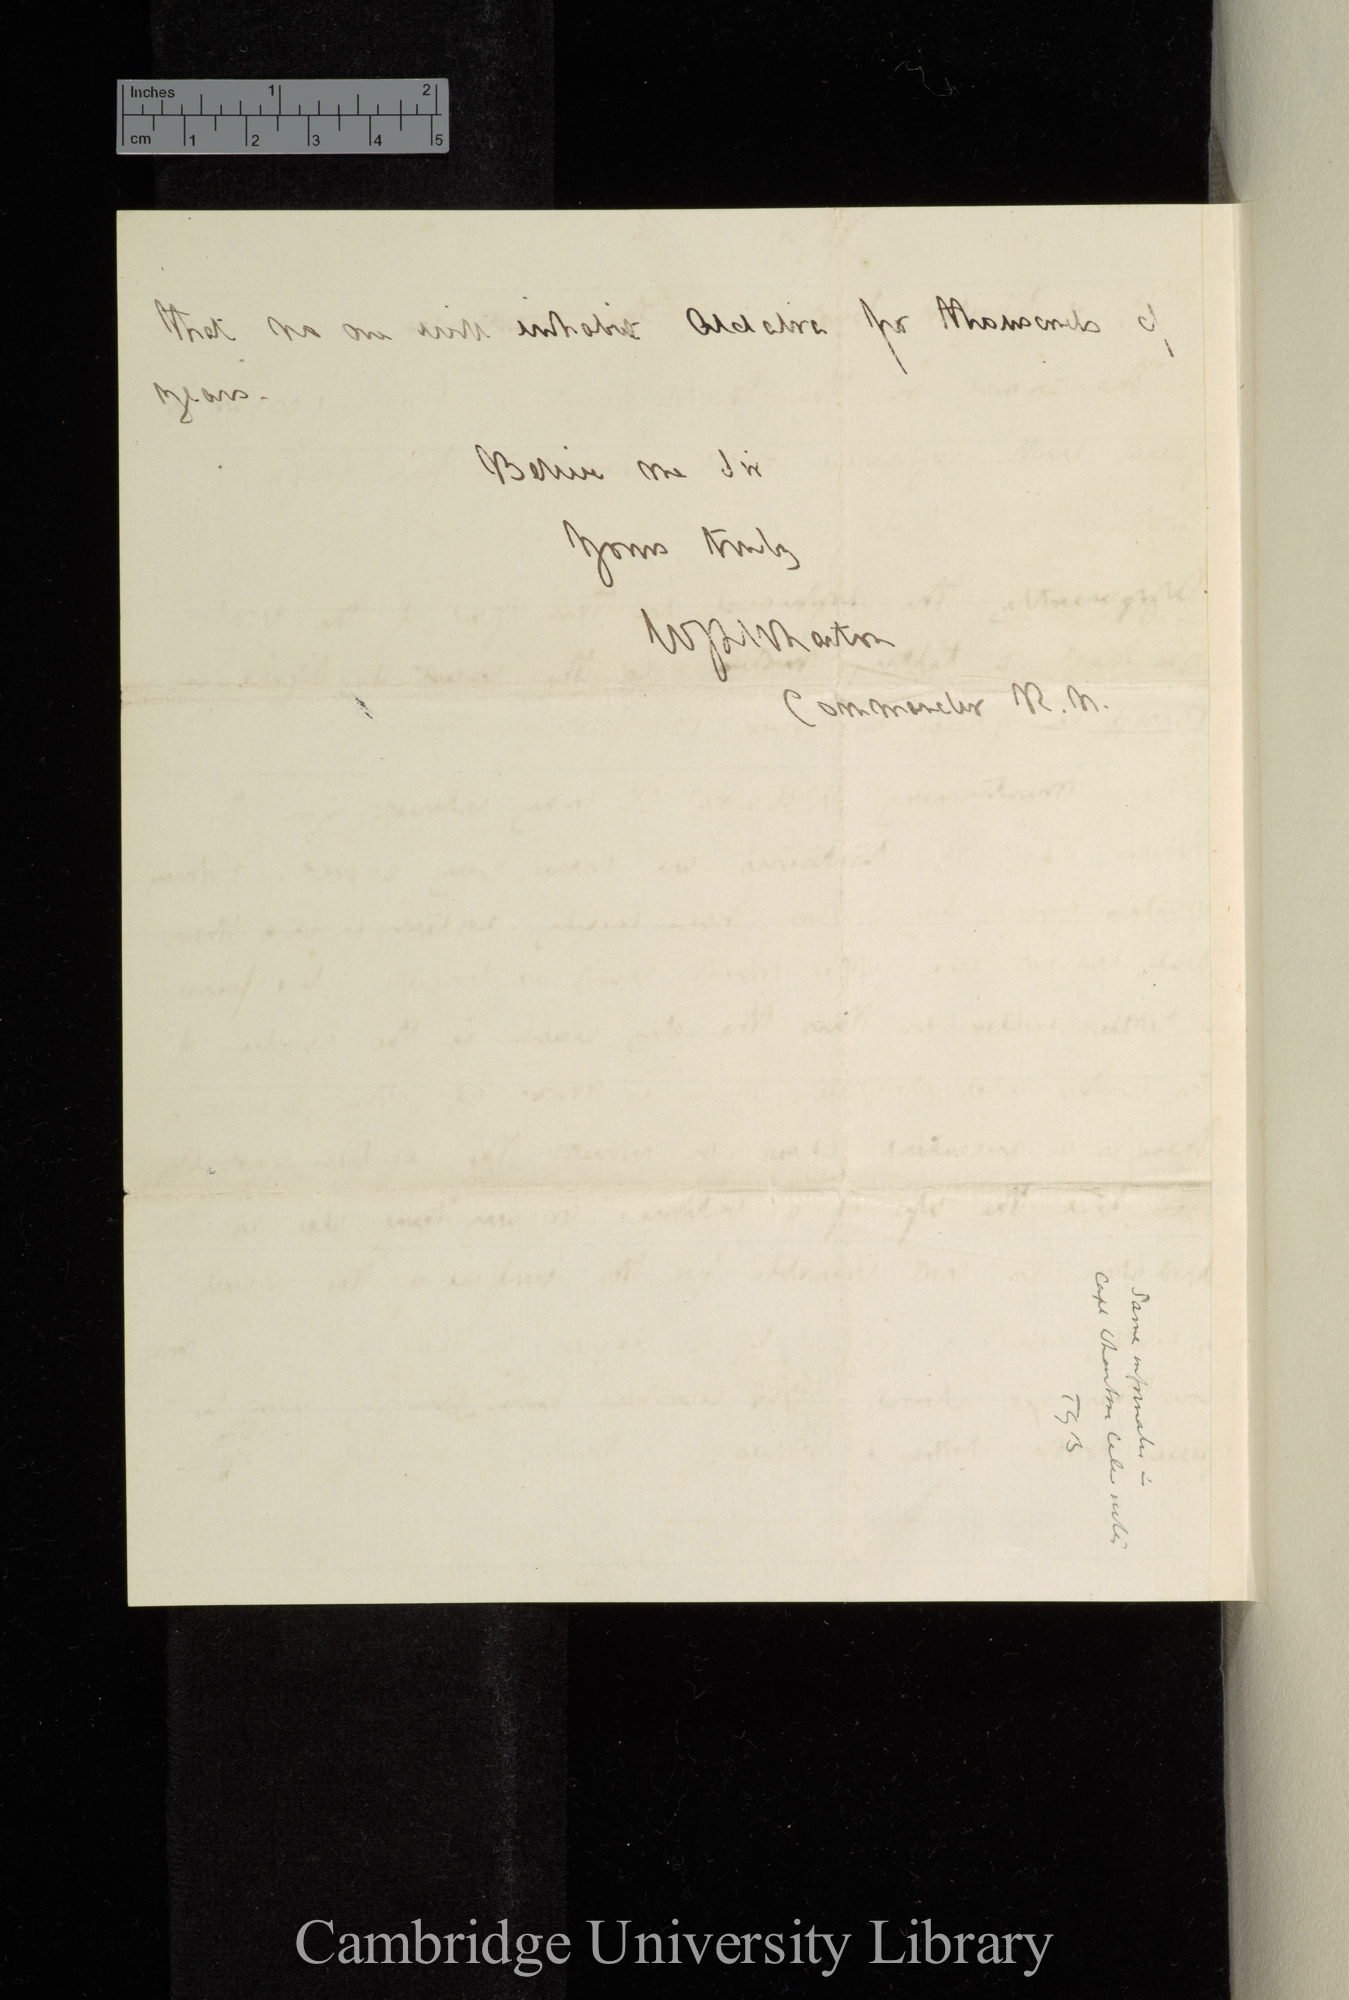 Inches 1 2
cm 1 2 3 4 5
that no one will inhabit Aldabra for thousands of
years.
Believe me Sir
Yours truly
WJL Wharton
Commander R.N.
Same information in
Capt Wharton
TGB
Cambridge University Library